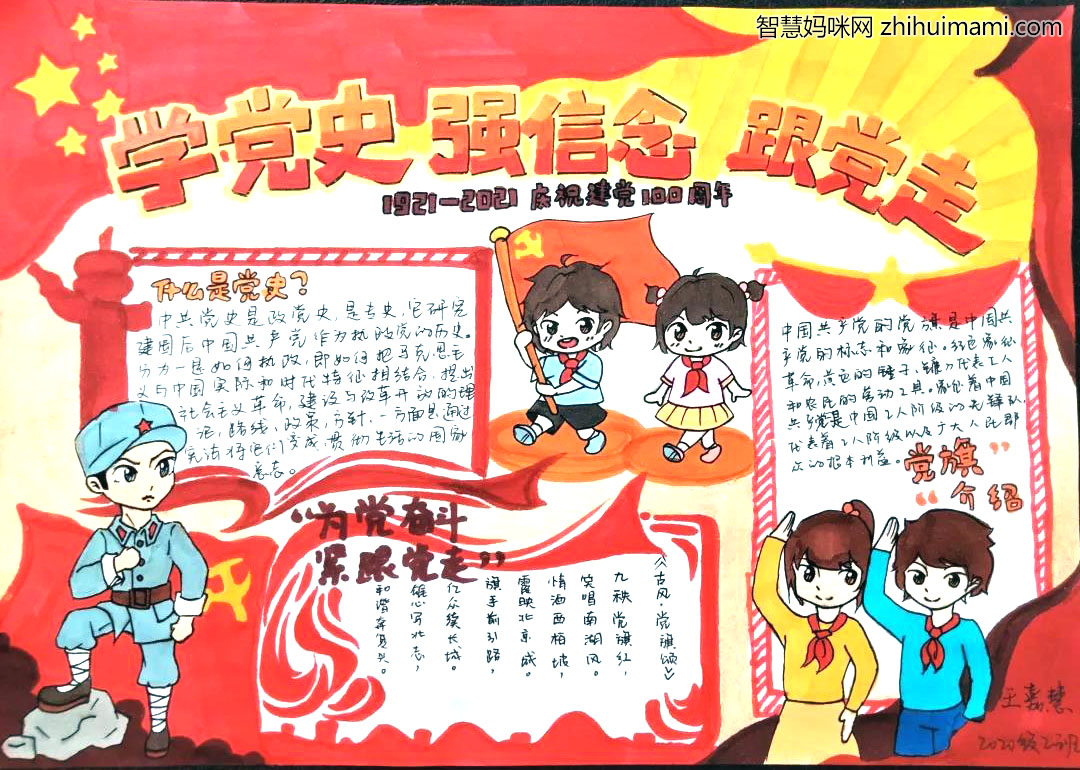 智慧妈咪网 zhihuimami.com
学党史 强信念 跟党走
1921—2021 庆祝建党100周年
什么是党史?
中共党史是政党史,是专史,它研究
建国后中国共产党作为执政党的历史。
另方一是如何执政,即如何把马克思主
义与中国实际和时代特征相结合,提出
社会主义革命,建设与改革开放的理
论,路线,政策,方针,一方面是通过
宪法将他们变成贯彻生活的国家
意志。
中国共产党的党旗是中国共
产党的标志和象征。红色象征
革命,黄色的锤子、镰刀代表工人
和农民的劳动工具。象征着中国
共产党是中国工人阶级的先锋队,
代表着工人阶级以及广大人民群
众的根本利益。
党旗”
“介绍
“为党奋斗
紧跟党走”
《古风·党旗颂》
九秩党旗红,
笑唱南湖风。
情洒西柏坡,
霞映北京城。
旗手前引路,
亿众筑长城。
雄心写北志,
和谐奔复兴。
王嘉慧
2020级2班